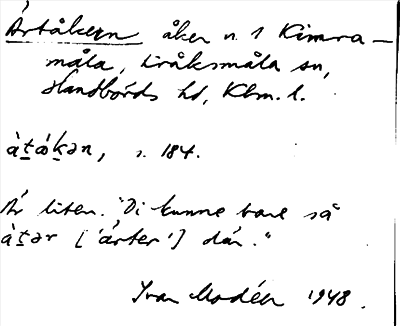 Ärtåkern åker n. 1 Kimra-
måla, Bräkmåla sn,
Handbörds hd, Klm. l.
à̱ṯǻḵən, s. 184.
Är liten. "Di kunne bare så
à̱ṯər ['ärter'] där."
Ivar Modéer 1948.